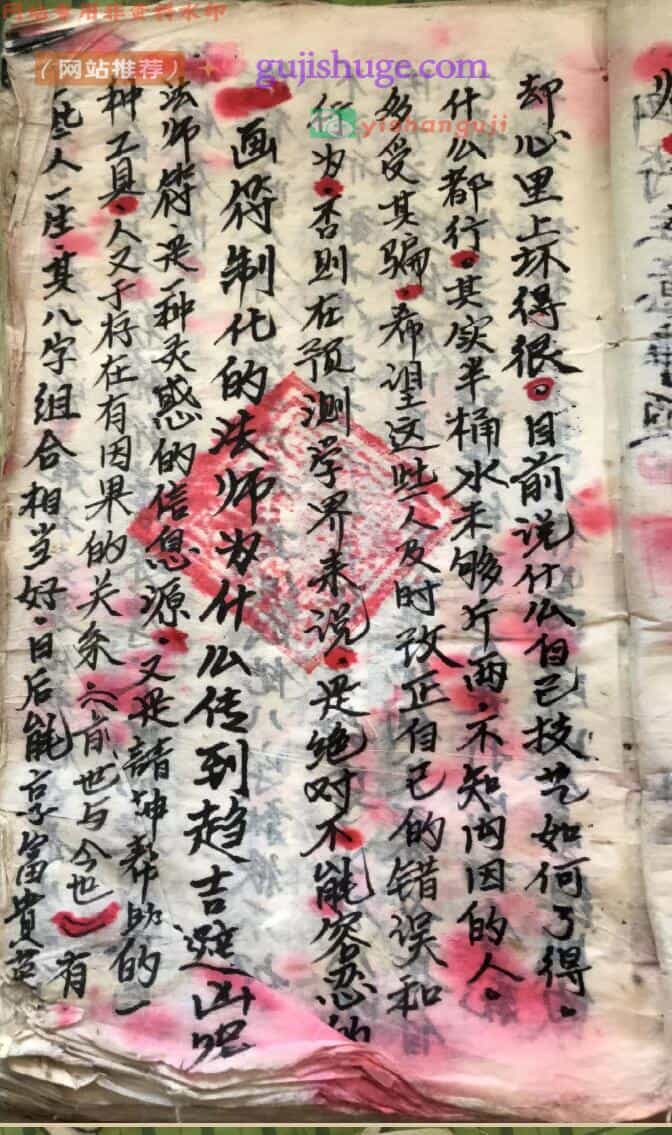 网站专用非资料水印
（网站推荐）
gujishuge.com
yishanguji
却心里上坏得很。目前说什么自己技艺如何了得。
什么都行。其实半桶水未够斤两。不知内因的人。
多受其骗。希望这些人及时改正自己的错误和
行为。否则在预测学界来说。是绝对不能容忍的
画符制化的法师为什么传到趋吉避凶呢
法师符。是一种灵感的信息源。又是請神帮助的一
种工具。人又于存在有因果的关系（前世与今世）有
些人一生。其八字组合相当好。日后能享富貴